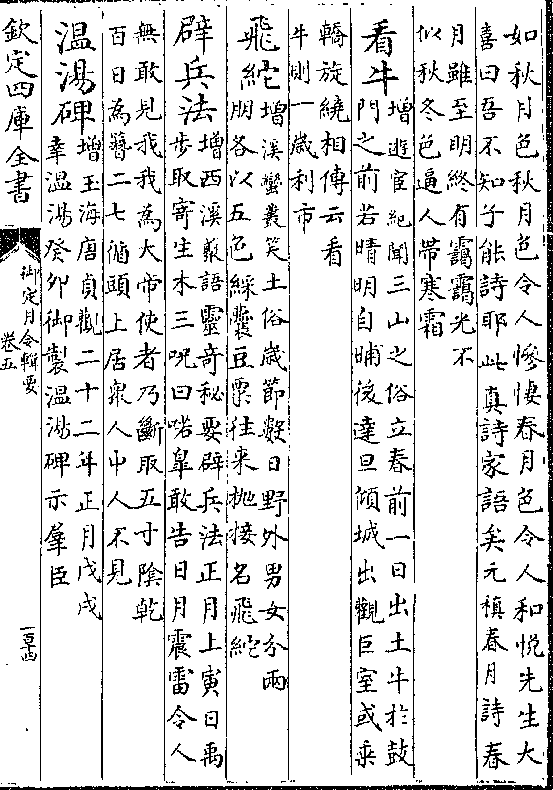 如秋月色秋月色令人慘悽春月色令人和悦先生大
喜曰吾不知子能詩耶此真詩家語矣元稹春月詩春
月雖至明終有靄靄光不
似秋冬色逼人帶寒霜
看牛
增遊宦紀聞三山之俗立春前一日出土牛於鼓
門之前若晴明自晡後達旦傾城出觀巨室或乘
轎旋繞相傳云看
牛則一歲利市
飛紽
增溪蠻叢笑土俗歲節數日野外男女分兩
朋各以五色綵囊豆粟往來抛接名飛紽
辟兵法
増西溪叢語靈奇秘要辟兵法正月上寅日禹
步取寄生木三呪曰喏臯敢告日月震雷令人
無敢見我我為大帝使者乃斷取五寸陰乾
百日為簪二七循頭上居衆人中人不見
温湯碑
增玉海唐貞觀二十二年正月戊戌
幸温湯癸卯御製温湯碑示羣臣
欽定四庫全書
御定月令輯要
卷五
一百十四